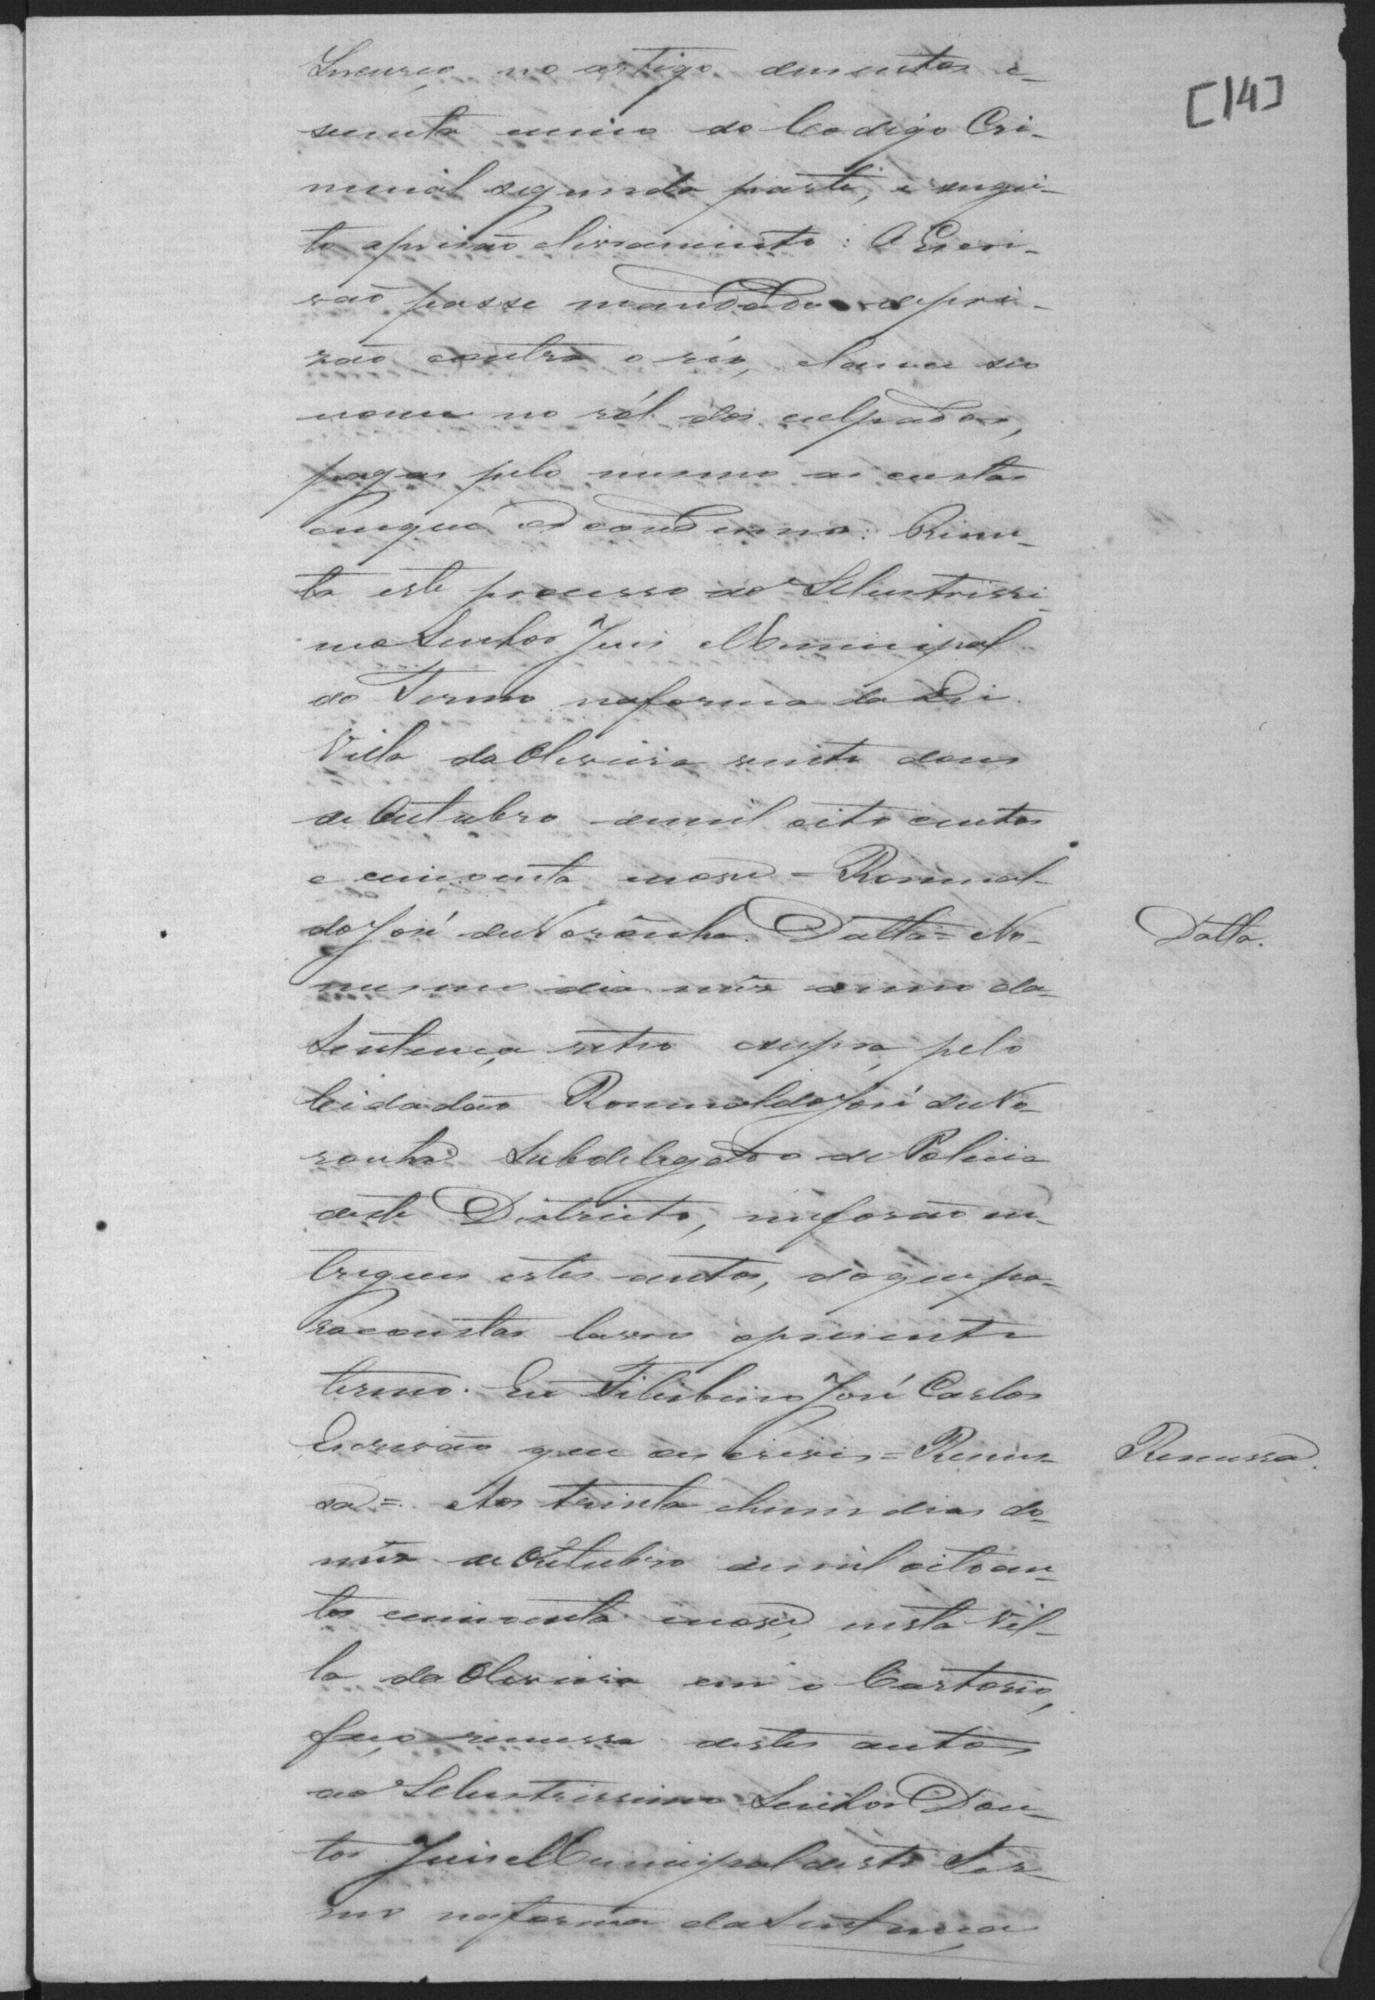 [14]
Incurço no artigo dusentos e
secenta euma do Codigo Cri-
minal segunda parte, e sugei-
to aprisão elivramento: O Escri-
vão passe mandado deprí-
zão contra o réo, elance seo
nome no ról dos culpados,
pagas pelo mesmo as custas
emque o condemno: Rime-
ta este processo ao Illustrissi-
mo Senhor Juis Municipal
do Termo naforma da Lei.
Villa da Oliveira vinte dous
de Outubro demil oito centos
e cincoenta enove = Romual-
do José de Noronha. Datta = No
mesmo dia mês eanno da
Sentença retro esupra, pelo
Cidadão Romualdo José de No-
ronha Subdelegado de Policia
deste Districto, meforão en-
tregues estes autos, do que pa-
raconstar lavro opresente
termo. Eu José Carlos
Escrivão que escrivi = Remes-
sa = Aos trinta ehum dias do
mês de Outubro demil oito cen-
tos cincoenta enove, nesta Vil-
la da Oliveira em o Cartorio,
faço remessa destes autos
ao Illustrissimo Senhor Dou-
tor Juis Municipal deste Ter-
mo naforma da Sentença
Datta.
Remessa.